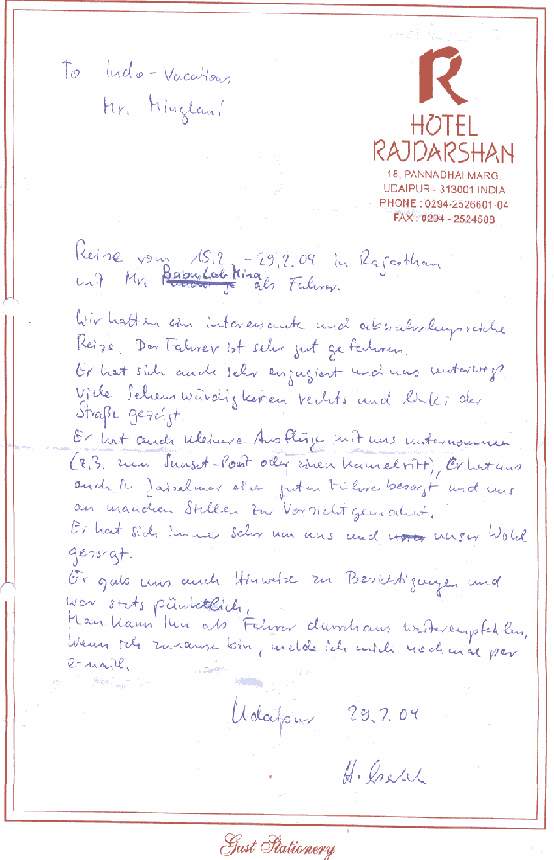 To Indo-Vacations
Mr. Minglani
R
HOTEL
RAJDARSHAN
18, PANNADHAI MARG
UDAIPUR - 313001 INDIA
PHONE : 0294-2526601-04
FAX : 0294 - 2524509
Reise vom 15.2. - 29.2.04 in Rajasthan
mit Mr. Babu Lab Mina als Führer.
Wir hatten ein interessante und abwechslungsreiche
Reise. Der Fahrer ist sehr gut gefahren.
Er hat sich auch sehr engagiert und uns unterwegs
viele Sehenswürdigkeiten rechts und links der
Straße gezeigt
Er hat auch kleinere Ausflüge mit uns unternommen
(z.B. zum Sunset-Point oder einen Kamelritt), Er hat uns
auch in Jaiselmer einen guten Führer besorgt und uns
an manchen Stellen zur Vorsicht gemahnt.
Er hat sich immer sehr um uns und unser Wohl
gesorgt.
Er gab uns auch Hinweise zu Besichtigungen und
war stets pünktlich,
Man kann ihn als Führer durchaus weiterempfehlen,
Wenn ich zuhause bin, melde ich mich nochmal per
e-mail.
Udaipur 29.2.04
H.
Gust Stationery